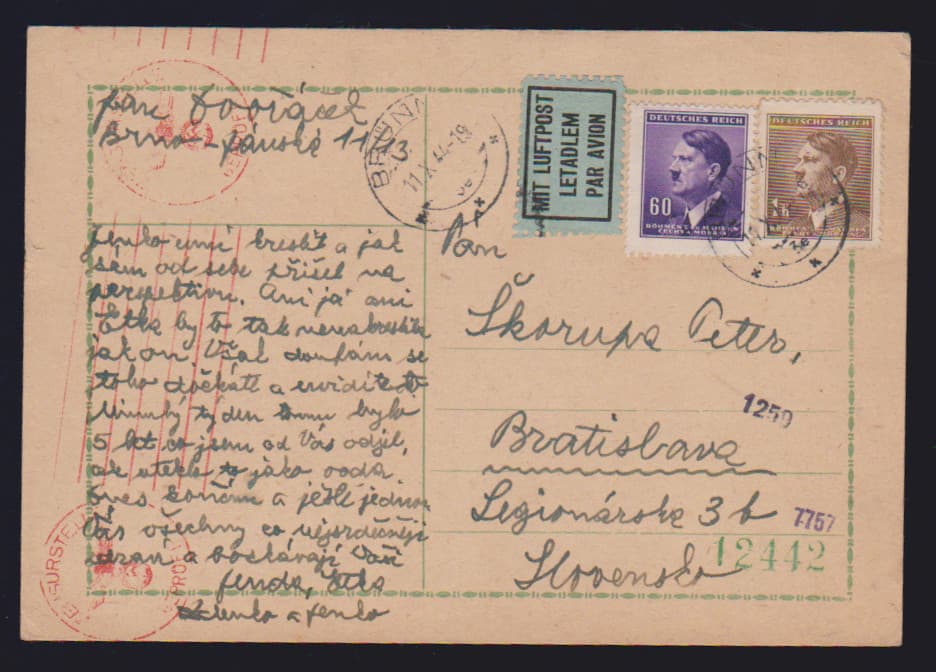 Jan Dvořáček
Brno Jánská 11/13
BRÜNN
11.X.44-19
MIT LUFTPOST
LETADLEM
PAR AVION
DEUTSCHES REICH
60
BÖHMEN u. MÄHREN
ČECHY a MORAVA
DEUTSCHES REICH
1 K
BÖHMEN u. MÄHREN
ČECHY a MORAVA
Pan
Škorupa Peter,
1259
Bratislava
Legionárska 3 b
7757
12442
Slovensko
umí kreslit a jak
sám od sebe přišel na
perspektivu. Ani já ani
Etka by to tak nenakreslila
jak on. Však doufám se
toho dočkáti a uvidíte to
Minulý týden tomu bylo
5 let co jsem od Vás odjel,
ale uteklo to jako voda.
Dnes končím a ještě jednou
Vás všechny co nejsrdečněji
zdraví a pozdravují Vaši
Jenda, Etka
Lenka a Jenko